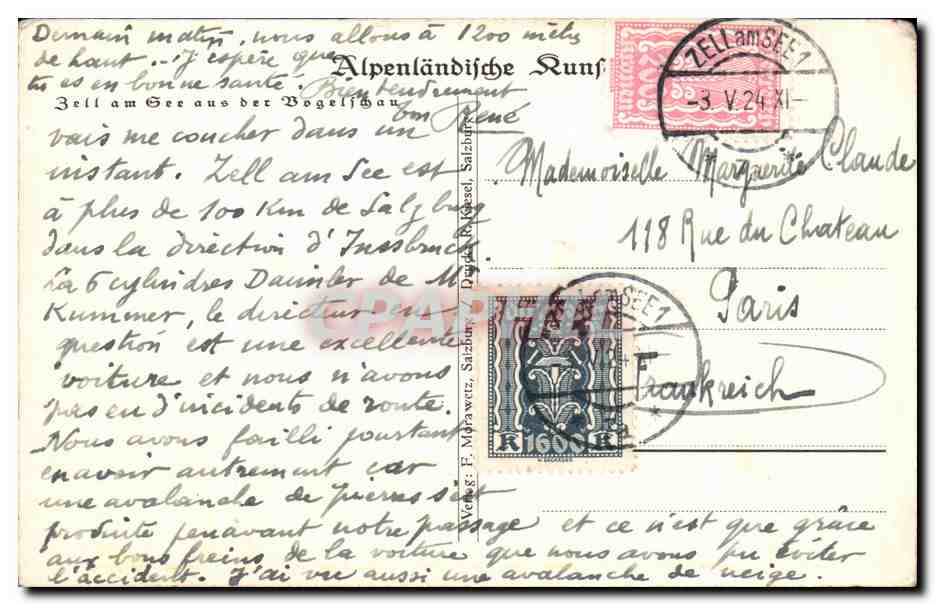 Demain matin, nous allons à 1200 mètres
de haut... J'espère que
tu es en bonne santé. Bien tendrement
ton René
Alpenländische Kuns
Zell am See aus der Vogelschau
vais me coucher dans un
instant. Zell am See est
à plus de 100 Km de Salzburg
dans la direction d'Innsbruck.
La 6 cylindres Daimler de Mr
Kummer, le directeur en
question est une excellente
voiture et nous n'avons
pas eu d'incidents de route.
Nous avons failli pourtant
en avoir autrement car
une avalanche de pierres s'est
produite penavant notre passage et ce n'est que grâce
aux bons freins de la voiture que nous avons pu éviter
l'accident. J'ai vu aussi une avalanche de neige.
Verlag: F. Morawetz, Salzburg / Druck: R. Kiesel, Salzburg
ZELL am SEE 1
-3. V. 24 XI-
Mademoiselle Marguerite Claude
118 Rue du Chateau
Paris
Frankreich
SEE 1
K 1600 K
CPAPHIL